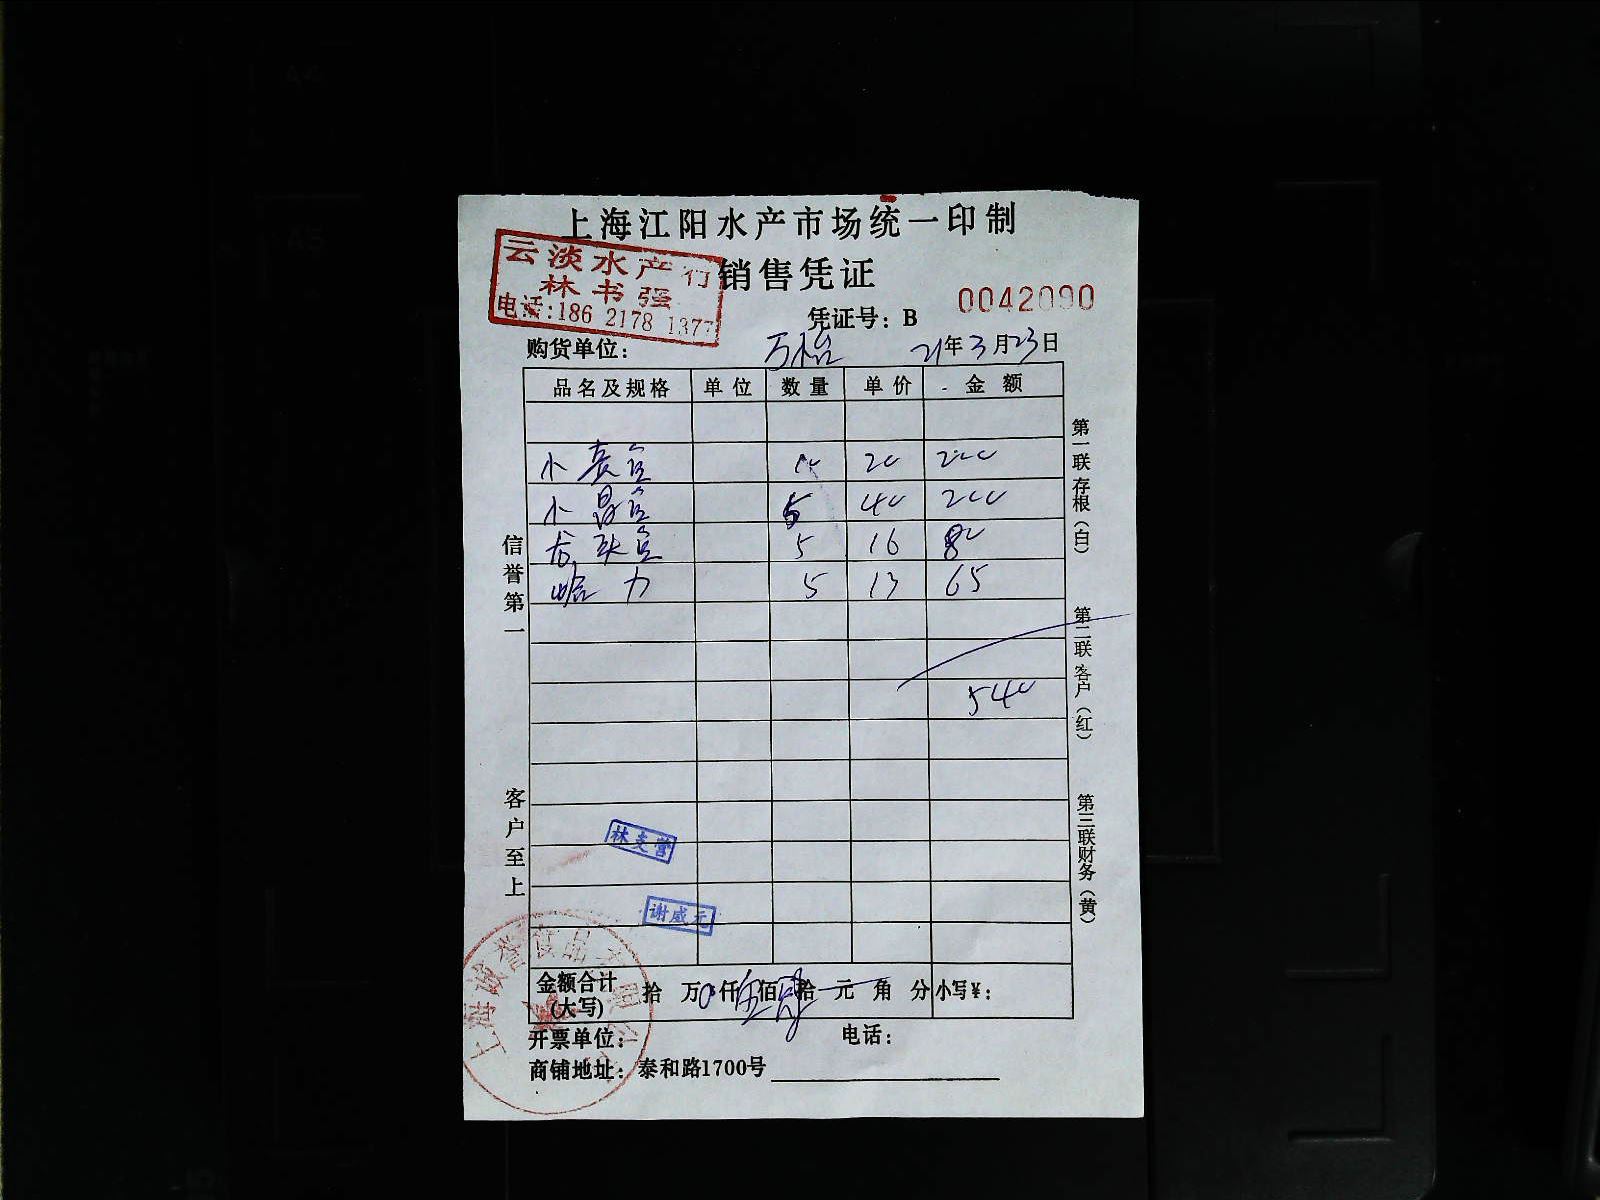 上海江阳水产市场统一印制
销售凭证
云淡水产行
林书强
电话:186 2178 1377
凭证号:B 0042090
购货单位: 万怡 21年3月23日
品名及规格 单位 数量 单价 金额
小 20 200
小 5 40 200
5 16 80
哈力 5 13 65
540
信誉第一
客户至上
第一联存根(白)
第二联客户(红)
第三联财务(黄)
林支营
谢威元
金额合计(大写) 拾 万 仟伍佰肆拾 元 角 分 小写¥:
开票单位: 电话:
商铺地址: 泰和路1700号